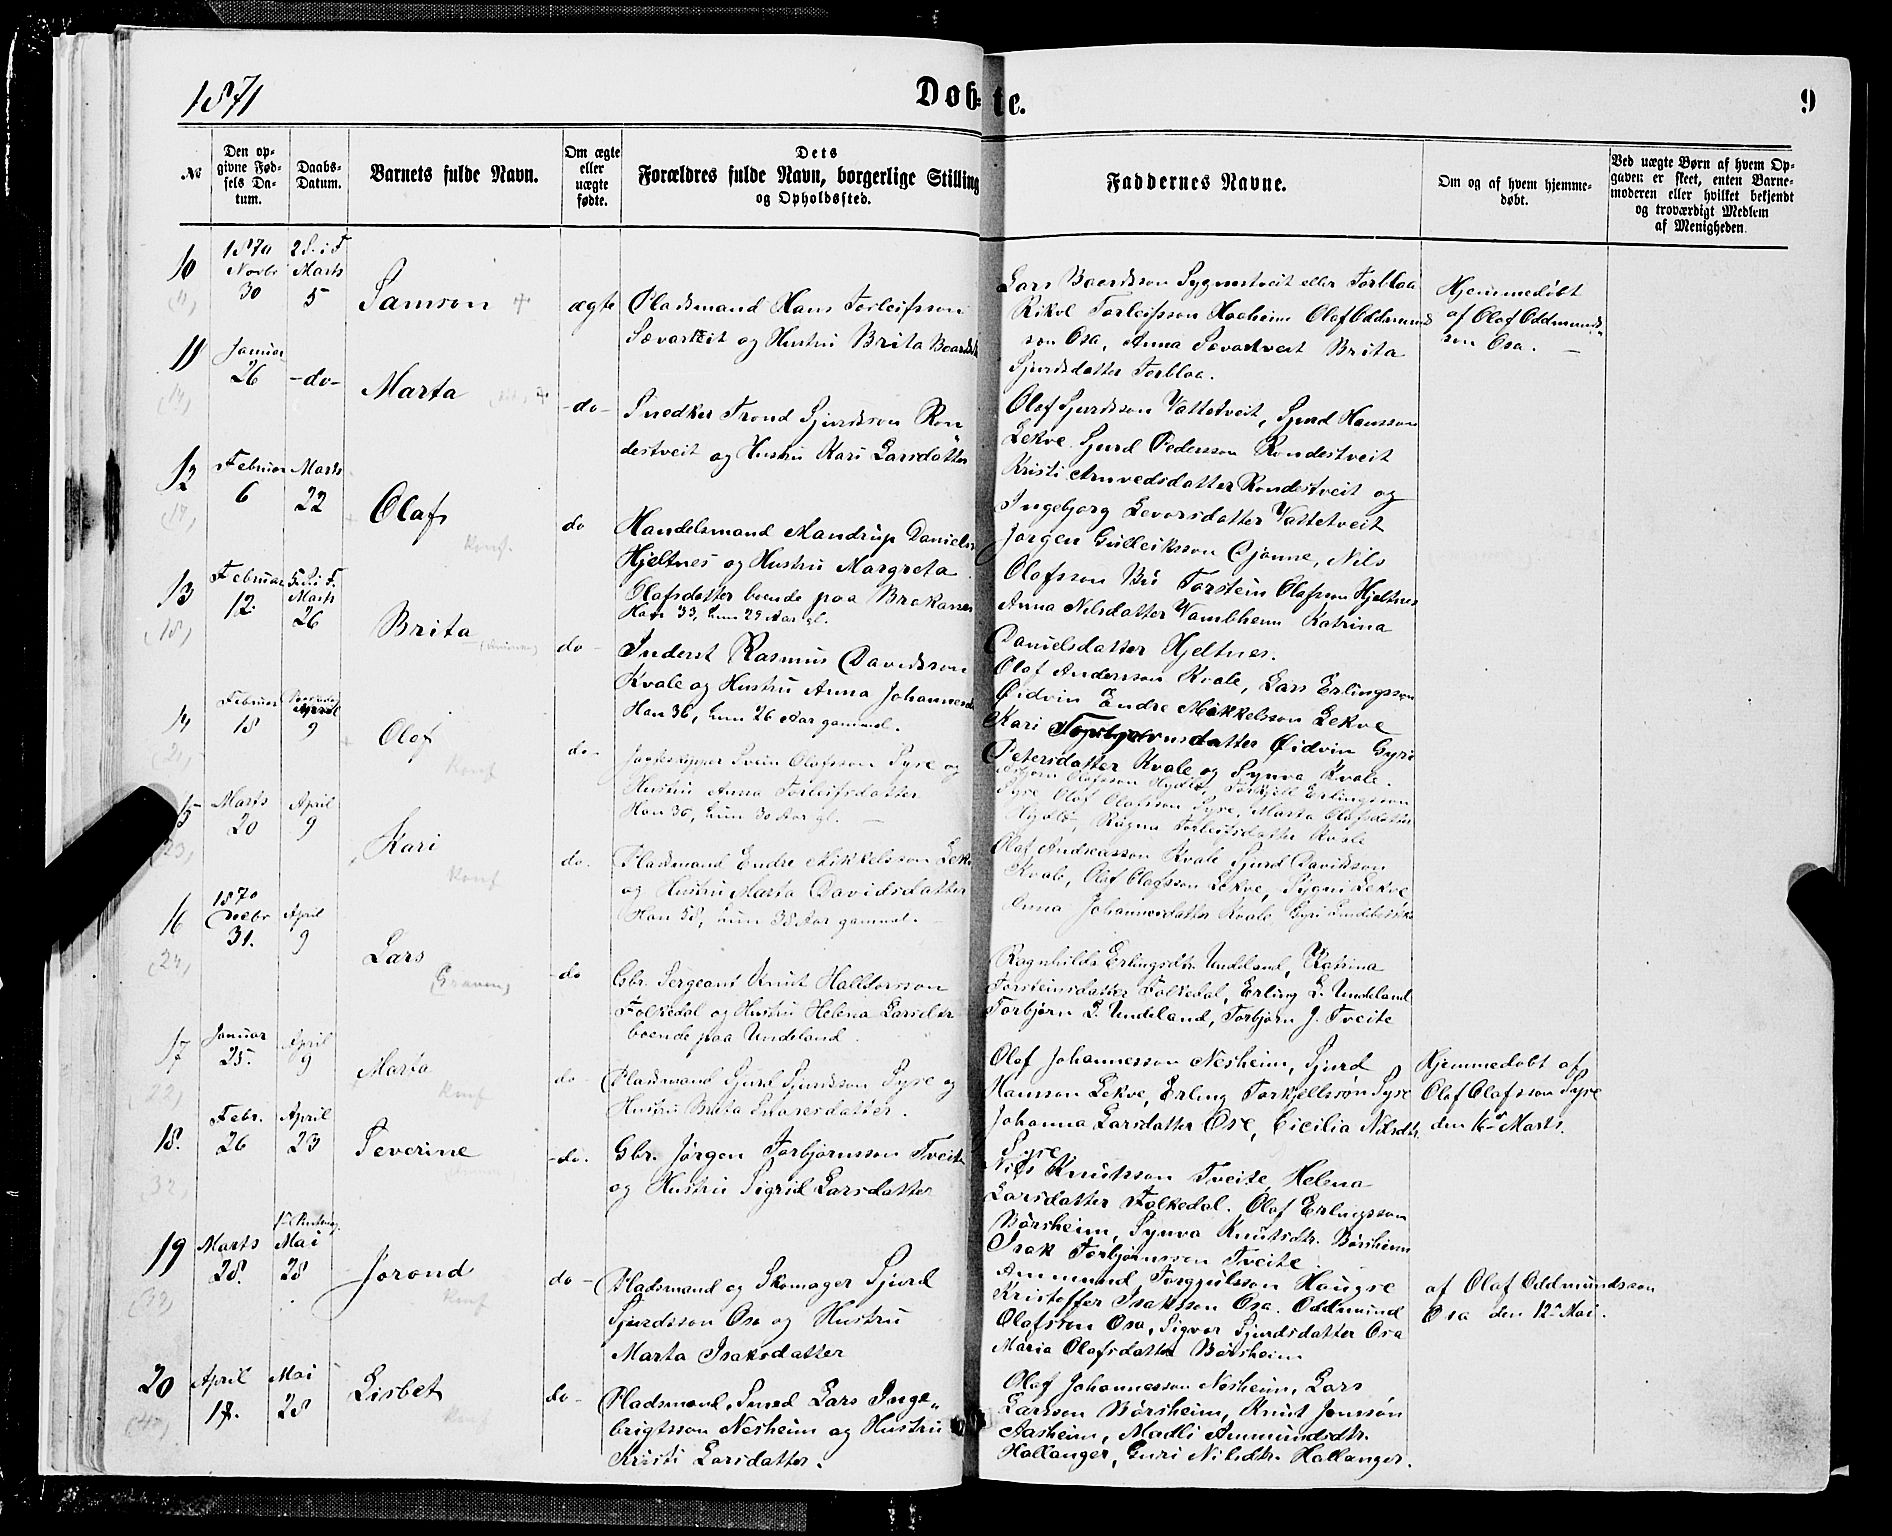 1871
Døbte.
9
No
Den opgivne Fødsels Datum.
Daabs-Datum.
Barnets fulde Navn.
Om ægte eller uægte fødte.
Dets Forældres fulde Navn, borgerlige Stilling og Opholdssted.
Faddernes Navne.
Om og af hvem hjemmedøbt.
Ved uægte Børn af hvem Opgaven er skeet, enten Barnemoderen eller hvilket bekjendt og troværdigt Medlem af Menigheden.
10
1870 Novbr 30
2 S. i F. Marts 5
Samson
ægte
Pladsmand Hans Torleifsson
Sævartveit og Hustru Brita Boards
Lars Baardsson Sygnestveit eller Torbloa
Rikol Torleifsson Haaheim Olaf Oddmund
son Osa, Anna Sævartveit Brita
Sjursdatter Torbloa.
Hjemmedøbt
af Olaf Oddmunds-
son Osa.
11
Januar 26
-do-
Marta
-do-
Snedker Trond Sjurdsson Ron
destveit og Hustru Kari Larsdatter
Olaf Sjurdsson Vattetveit, Sjurd Hansson
Lekve Sjurd Pedersson Rondestveit
Kristi Arnvedsdatter Rondestveit og
Ingebjorg Levorsdatter Vattetveit
12
Februar 6
Marts 22
Olaf
Konf.
do
Handelsmand Mandrup Daniels
Hjeltnes og Hustru Margreta
Olafsdatter boende paa Brakanes
Han 33, hun 29 Aar gl.
Jørgen Gulleiksson Djønne, Nils
Olafsson Bu Torstein Olafsson Hjeltnes
Anna Nilsdatter Vambheim Katrina
Danielsdatter Hjeltnes.
13
(18)
Februar 12.
5 S. i F. Marts 26
Brita
do
Inderst Rasmus Davidsson
Kvale og Hustru Anna Johannesd
Han 36, hun 26 Aar gammel.
Olaf Andersson Kvale, Lars Erlingsson
Øidvin Endre Mikkelsson Lekve
Kari Torbjørnsdatter Øidvin Gyri
Petersdatter Kvale og Synva Kvale.
14
Februar 18
April 9
Olaf
Konf
do-
Jagteskipper Svein Olafsson Syse og
Hustru Anna Torleifsdatter
Han 36, hun 30 Aar gl.
Asbjørn Olafsson Hyldle, Torkjell Erlingsson
Syse Olaf Olafsson Syse, Marta Olafsdatter
Hyldle, Ragna Torleifsdatter Kvale
15
Marts 20
April 9
Kari
Konf
do.
Pladsmand Endre Mikkelsson Lekv
og Hustru Marta Davidsdatter
Han 58, hun 38 Aar gammel.
Olaf Andreasson Kvale Sjurd Davidsson
Kvale, Olaf Olafsson Lekve, Sigvei Lekve,
Anna Johannesdatter Kvale, Gyri
16
(24)
1870 Decbr 31.
April 9
Lars
(Graven)
do
Gbr. Sergeant Knut Halldorsson
Folkedal og Hustru Helena Larsdtr
boende paa Undeland.
Ragnhilds Erlingsdtr. Undeland, Katrina
Torsteinsdatter Folkedal, Erling L. Undeland
Torbjørn L. Undeland, Torbjørn J. Tveite
17
(22)
Januar 25.
April 9
Marta
Konf
do
Pladsmand Sjurd Sjurdsson Syse og
Hustru Brita Ivarsdatter.
Olaf Johannesson Nesheim, Sjurd
Hansson Lekve, Erling Torkjellsson Syse
Johanna Larsdatter Ose, Cicilia Nilsdtr.
Syse
Hjemmedøbt af
Olaf Olafsson Syse
den 16de Marts.
18.
(32)
Febr. 26
April 23
Severine
-do.
Gbr. Jørgen Torbjørnsson Tveit
og Hustru Sigrid Larsdatter
Nils Knutsson Tveite, Helena
Larsdatter Folkedal. Olaf Erlingsson
Børsheim, Synva Knutsdtr. Børsheim
Isak Torbjørnsson Tveite.
19
Marts 28.
Mai 28
Jorond
Konf
do-
Pladsmand og Skomager Sjurd
Sjurdsson Osa og Hustru
Marta Isaksdatter
Ammund Torgjulsson Haugse
Kristoffer Isaksson Osa. Oddmund
Olafsson Osa, Sigvor Sjurdsdatter Osa
Maria Olafsdatter Børsheim
af Olaf Oddmundsson
Osa den 12te Mai.
20
April 17.
Mai 28
Lisbet
do-
Pladsmand, Smed Lars Inge-
brigtsson Nesheim og Hustru
Kristi Larsdatter.
Olaf Johannesson Nesheim, Lars
Larsson Børsheim, Knut Jonsson
Aasheim, Madli Ammundsdtr.
Hallanger, Guri Nilsdtr. Hallanger.